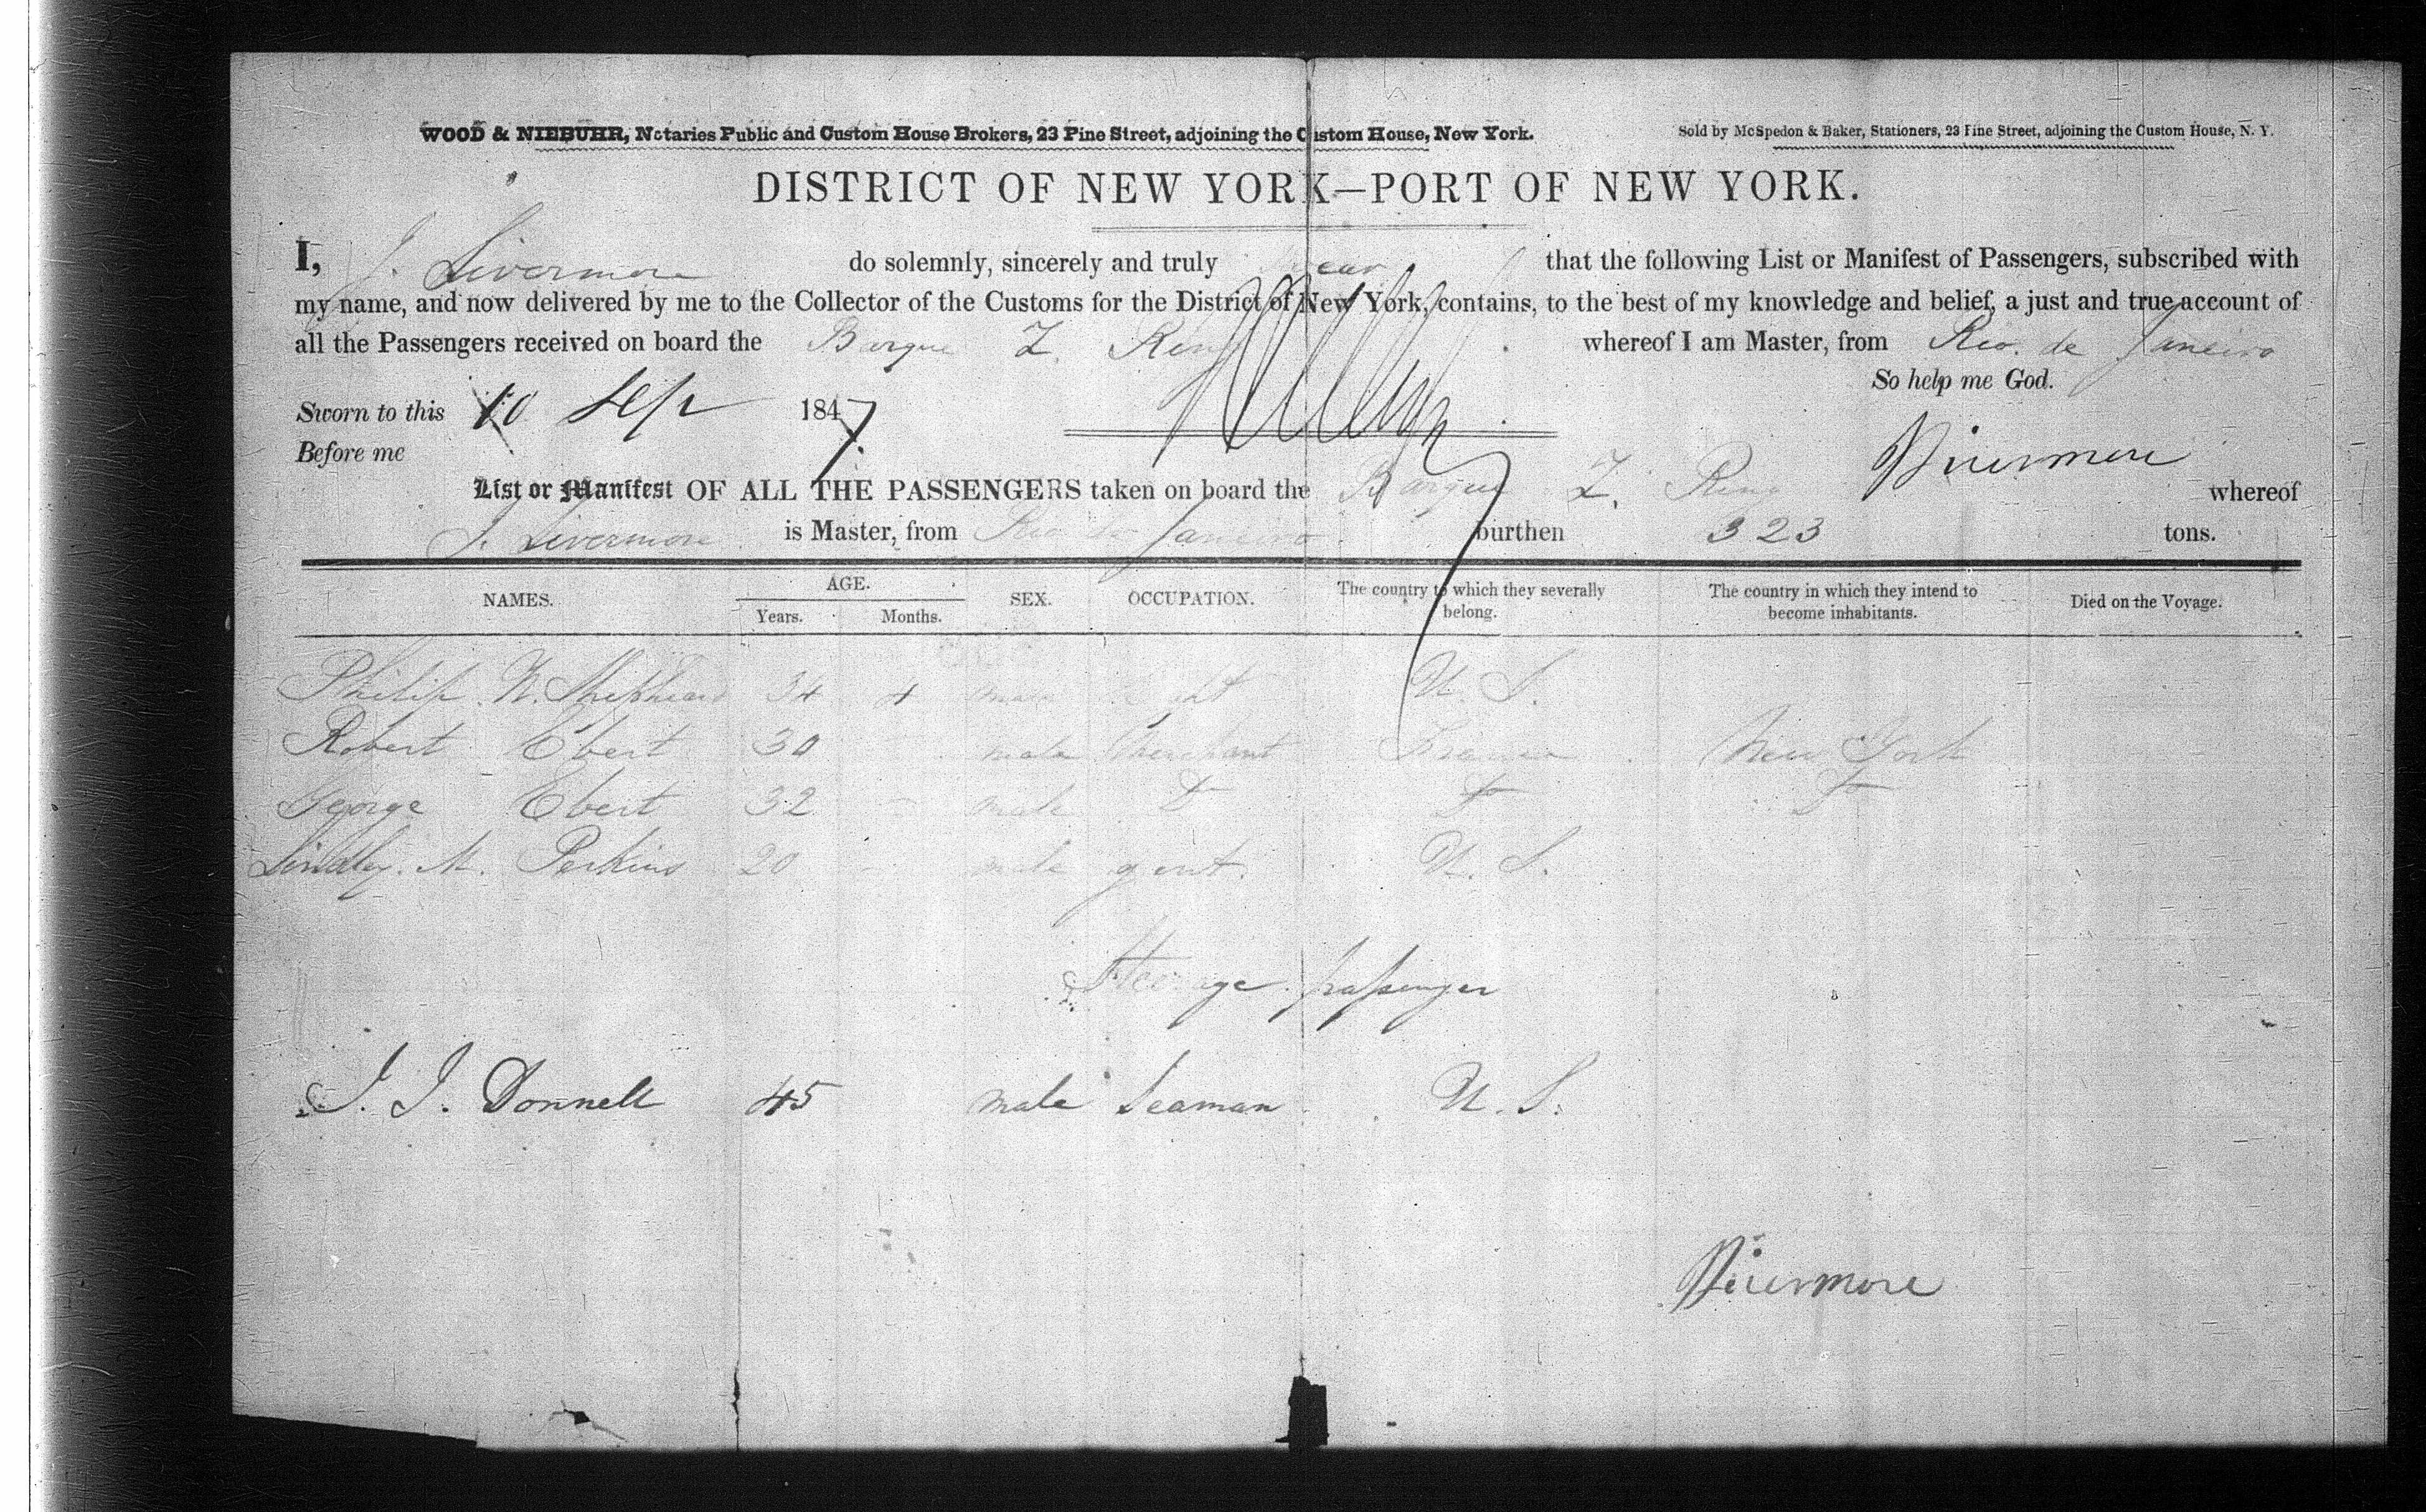 WOOD & NIEBUHR, Notaries Public and Custom House Brokers, 23 Pine Street, adjoining the Custom House, New York.
Sold by McSpedon & Baker, Stationers, 23 Pine Street, adjoining the Custom House, N. Y.
DISTRICT OF NEW YORK—PORT OF NEW YORK.
I, J. Livermore do solemnly, sincerely and truly swear that the following List or Manifest of Passengers, subscribed with
my name, and now delivered by me to the Collector of the Customs for the District of New York, contains, to the best of my knowledge and belief, a just and true account of
all the Passengers received on board the Barque Z. Ring whereof I am Master, from Rio. de Janeiro
So help me God.
Sworn to this 10 Sep 1847.
Before me
Livermore
List or Manifest OF ALL THE PASSENGERS taken on board the Barque Z. Ring whereof
J. Livermore is Master, from Rio de Janeiro burthen 323 tons.
NAMES. AGE. Years. Months. SEX. OCCUPATION. The country to which they severally belong. The country in which they intend to become inhabitants. Died on the Voyage.
Philip N. Shepheard 34 4 male U. S.
Robert Ebert 30 male Merchant New York
George Ebert 32 male Do Do Do
Lindley. M. Perkins 20 male gent. U. S.
Steerage passenger
J. J. Donnell 45 male Seaman U. S.
Livermore